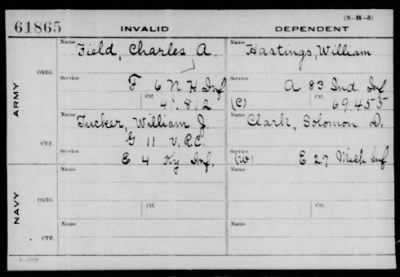 61865 INVALID DEPENDENT (3-H-3)
Name Field, Charles A. Name Hastings, William
ORIG. Service F 6 N H Inf Service A 83 Ind Inf
ARMY Ctf. Ctf.
(C) 69.455
Name Tucker, William J. Name Clark, Solomon D.
G 11 V.R.C.
CTF. Service E 4 Ky Inf. Service (W) E 27 Mich Inf
Name Name
ORIG. Service Service
NAVY Ctf. Ctf.
Name Name
CTF. Service Service